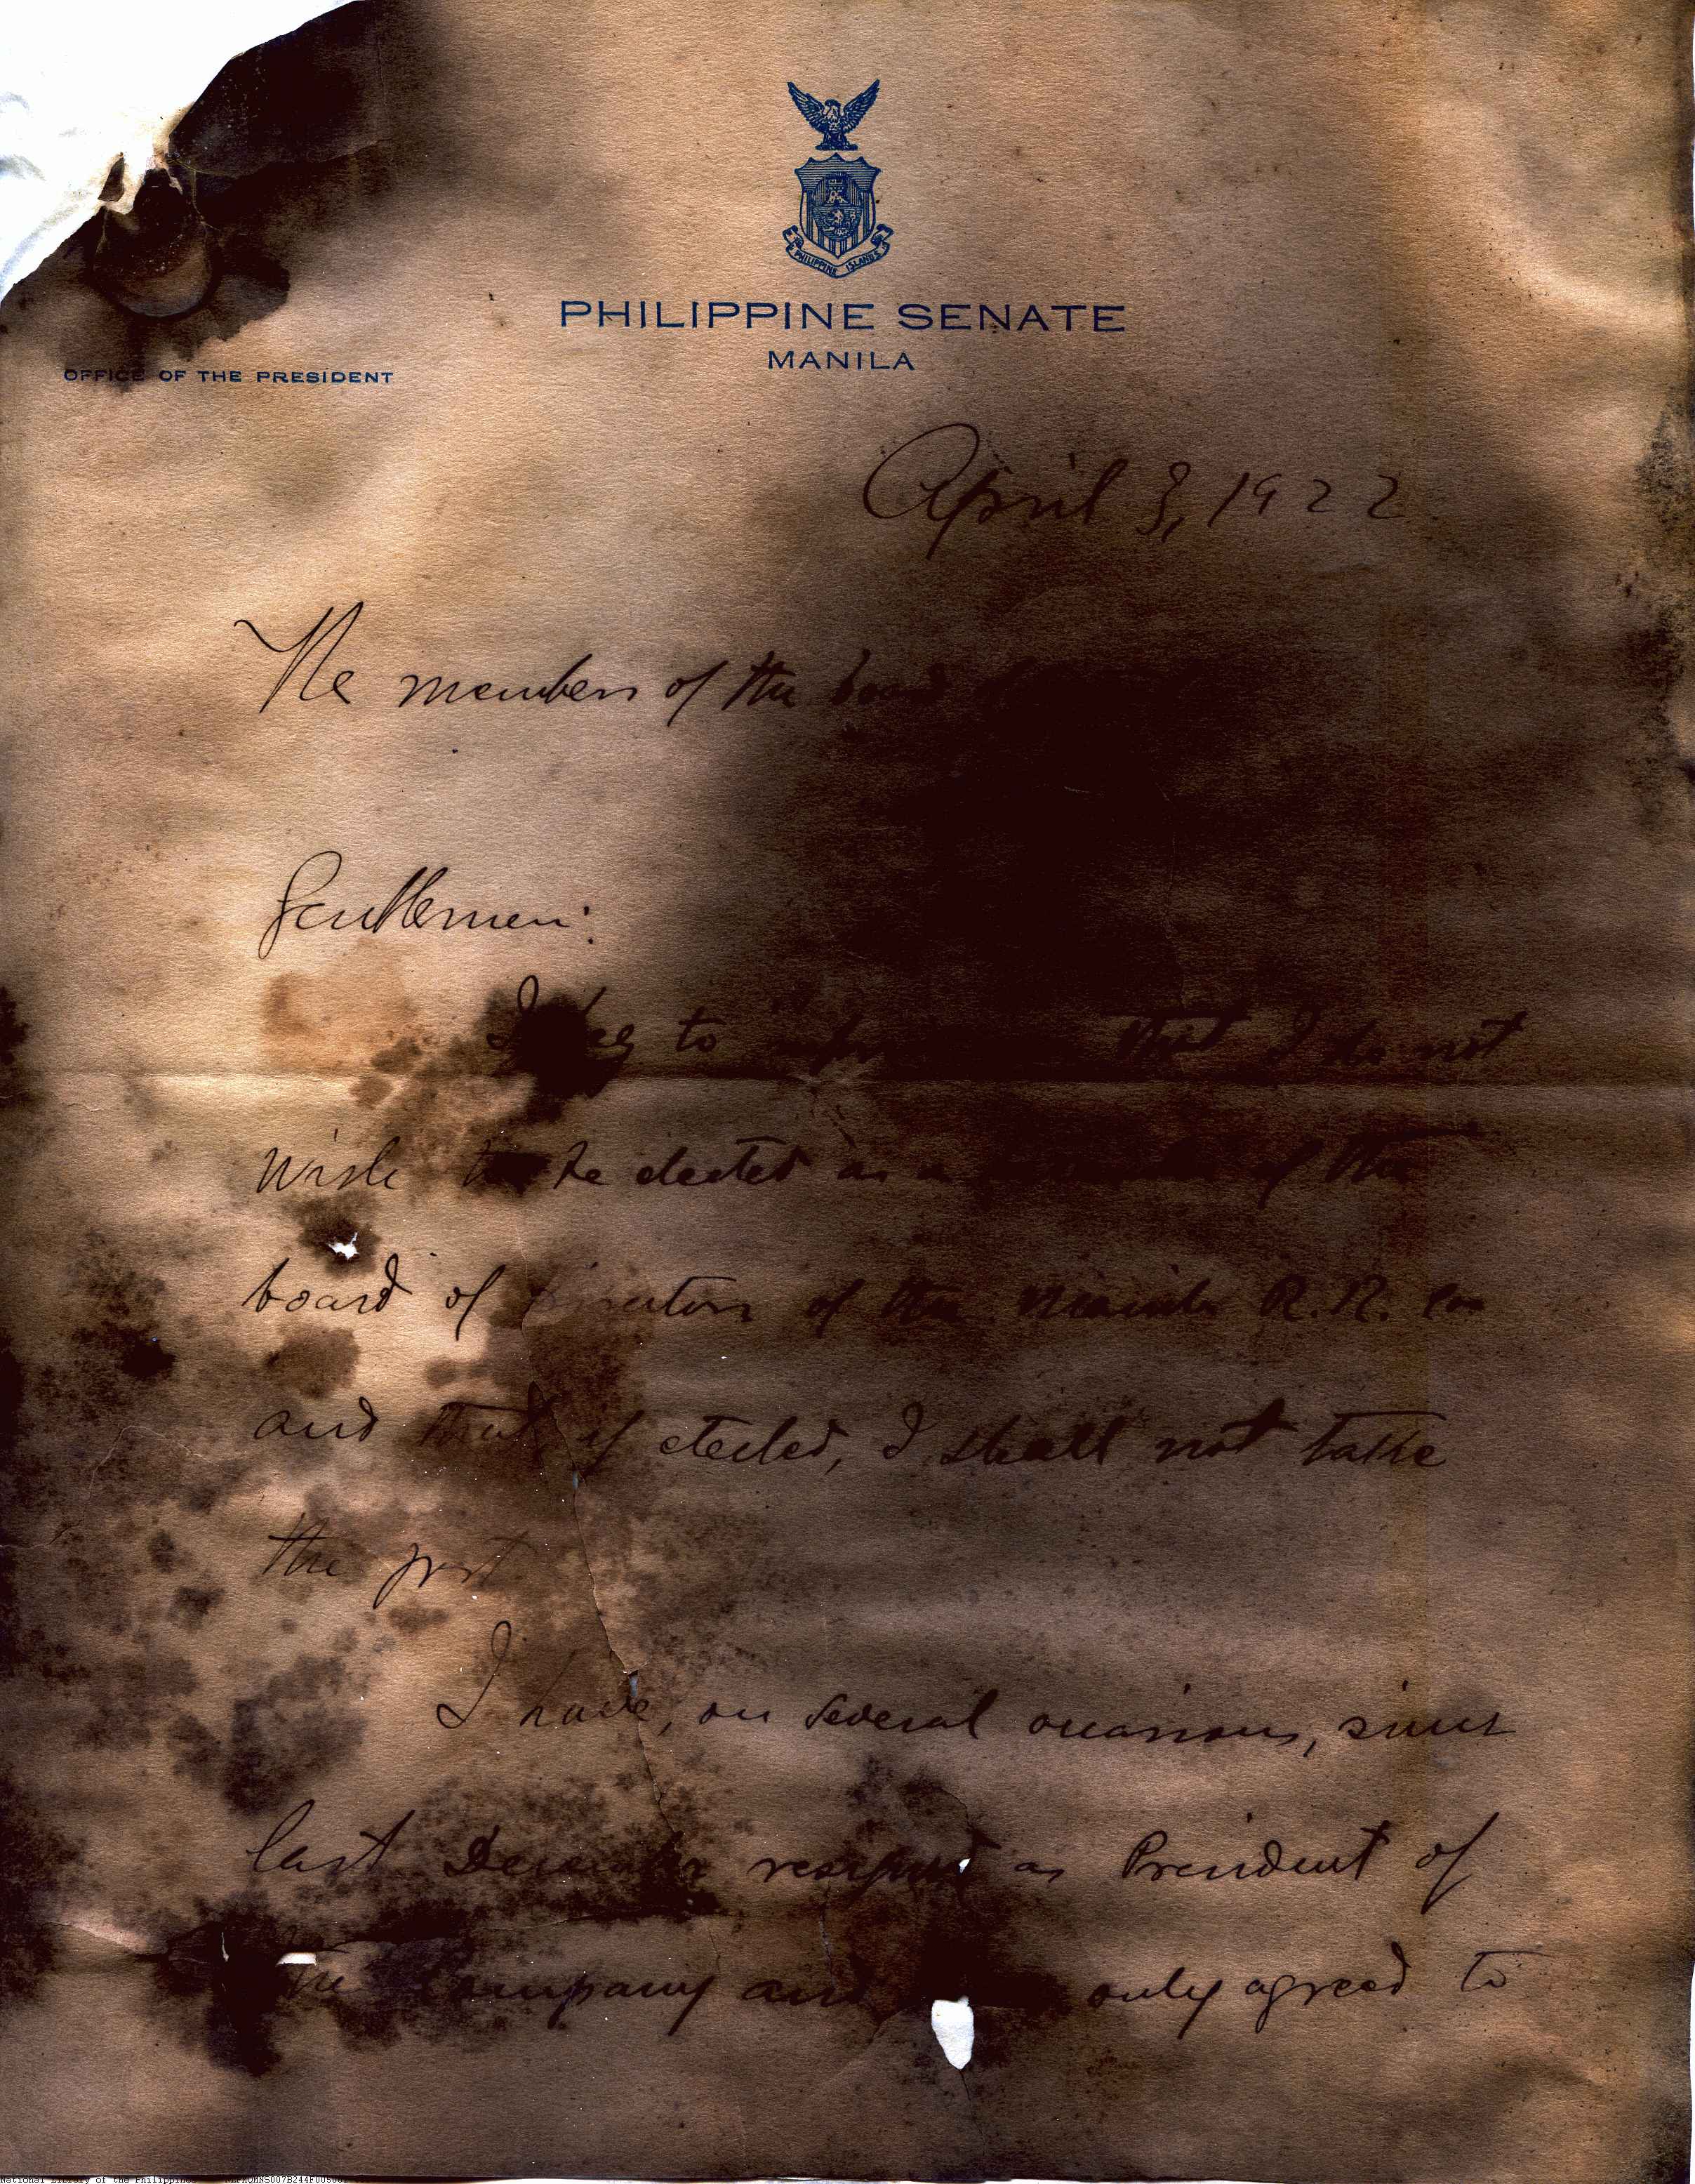 PHILIPPINE ISLANDS
PHILIPPINE SENATE
MANILA
OFFICE OF THE PRESIDENT
April 3, 1922
The members of the board
Gentlemen:
I beg to that I do not
wish to be elected as a of the
board of Directors of the Manila R.R. Co
and that, if elected, I shall not take
the post
I have, on several occasions, since
last December resigned as President of
the Company and only agreed to
National Library of the Philippines